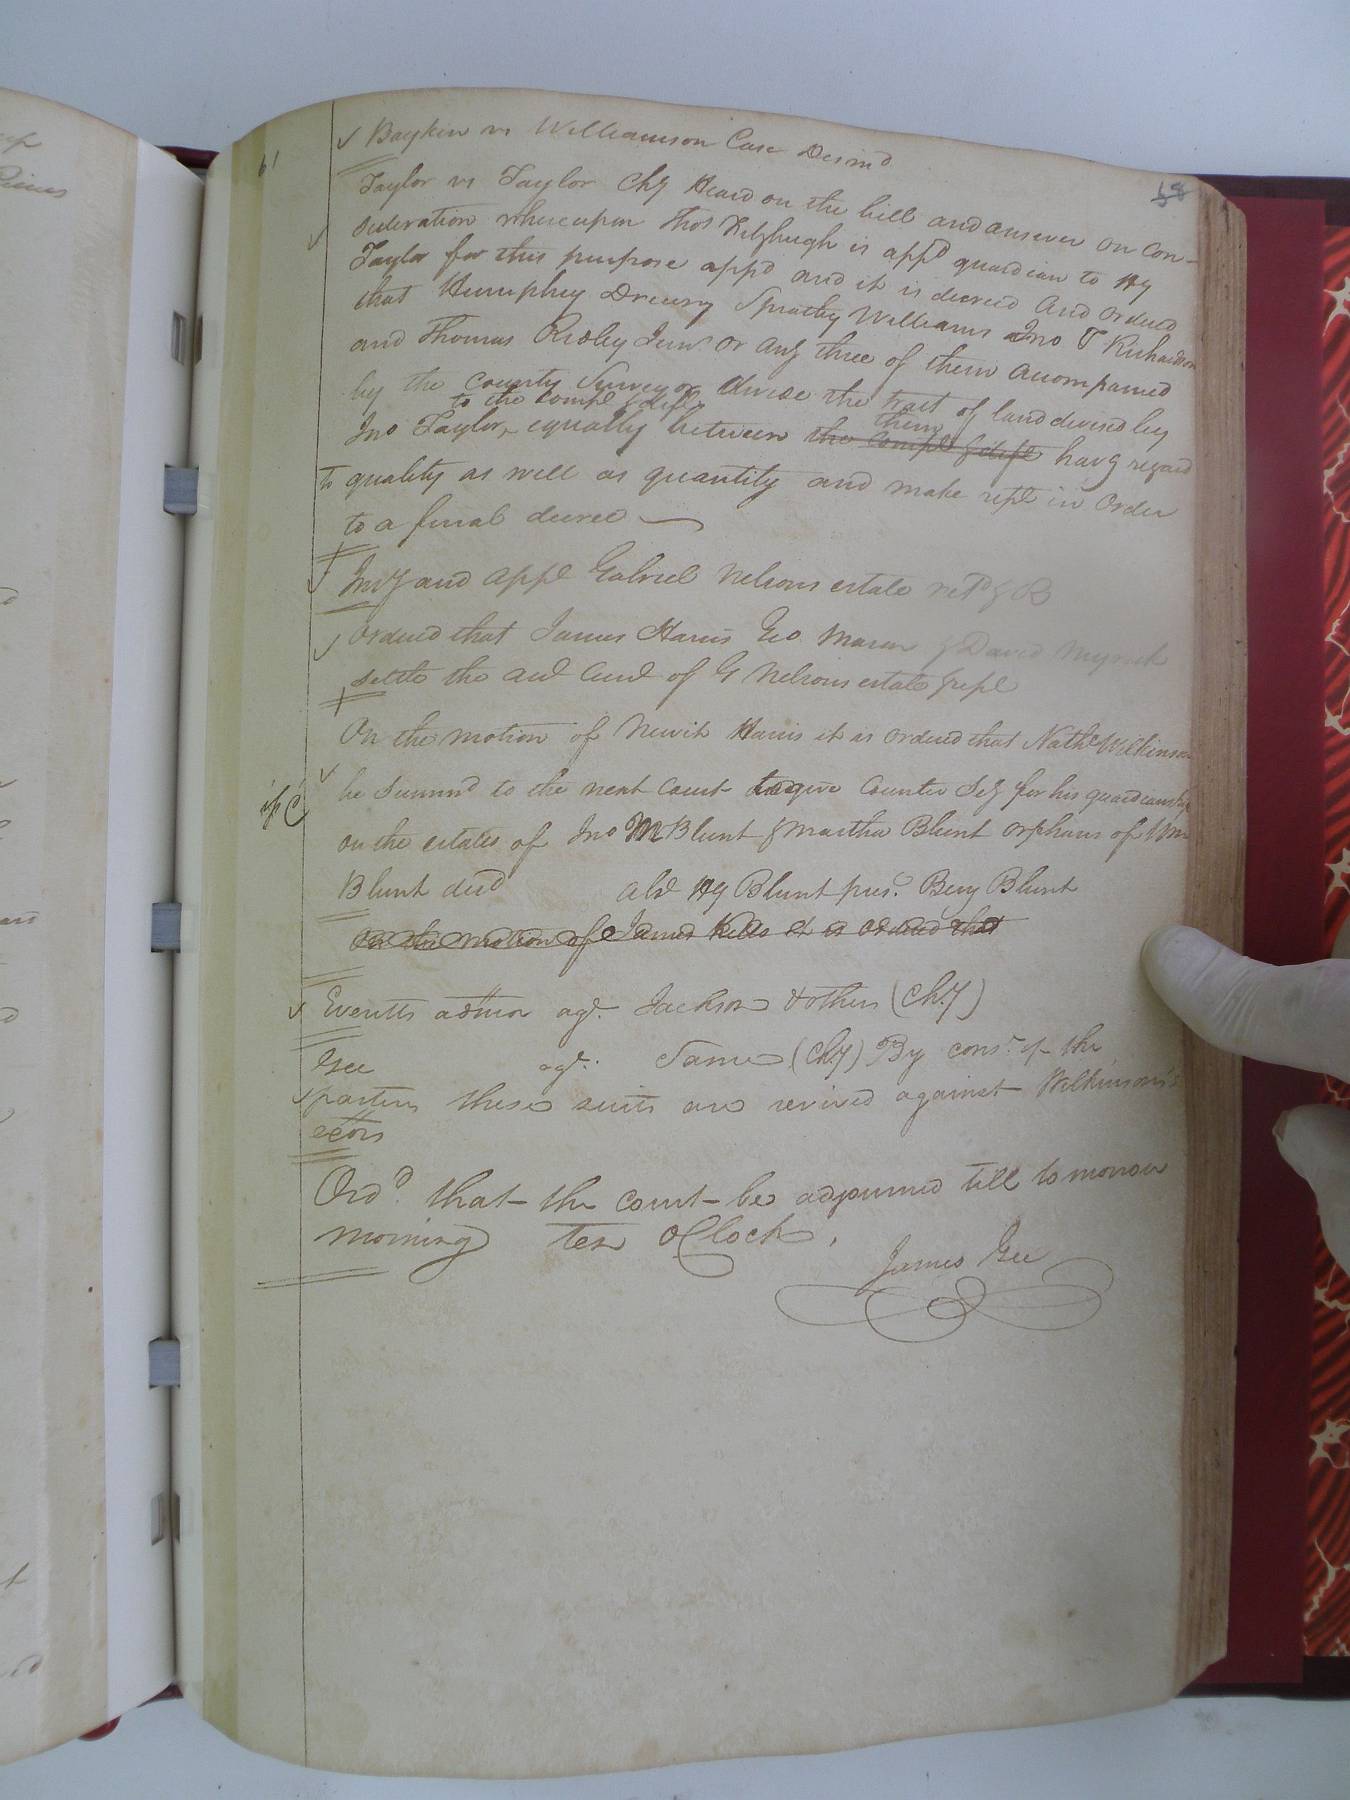 61
58
Boykin vs Williamson Case Dism'd
Taylor vs Taylor Chy Heard on the bill and answer on con-
sideration whereupon Thos Fitzhugh is app'd guardian to Hy
Taylor for this purpose app'd and it is decreed and ordered
that Humphrey Drewry Spratley Williams Jno T Richardson
and Thomas Ridley Junr or any three of them accompanied
by the County Surveyor divide the tract of land devised by
to the compl & deft them
Jno Taylor, equally between the compl & deft havg regard
To quality as well as quantity and make rept in order
to a final decree
Invy and appt Gabriel Nelsons estate ret'd & R
Ordered that James Harris Geo Mason & David Myrick
settle the aud Curd of G Nelsons estate & rept
On the motion of Newit Harris it is ordered that Nathl Wilkinson
be summd to the next court to give Counter Sey for his guardianship
on the estates of Jno M Blunt & Martha Blunt orphans of Wm
Blunt decd abst Hy Blunt prest Benj Blunt
On the motion of James Kello it is ordered that
Everitts admor agt. Jackson & others (Chy)
Gee agt. Same (Chy) By const. of the
parties these suits are revived against Wilkinson's
exors
Ord'd that the court be adjourned till to morrow
morning ten OClock.
James Gee